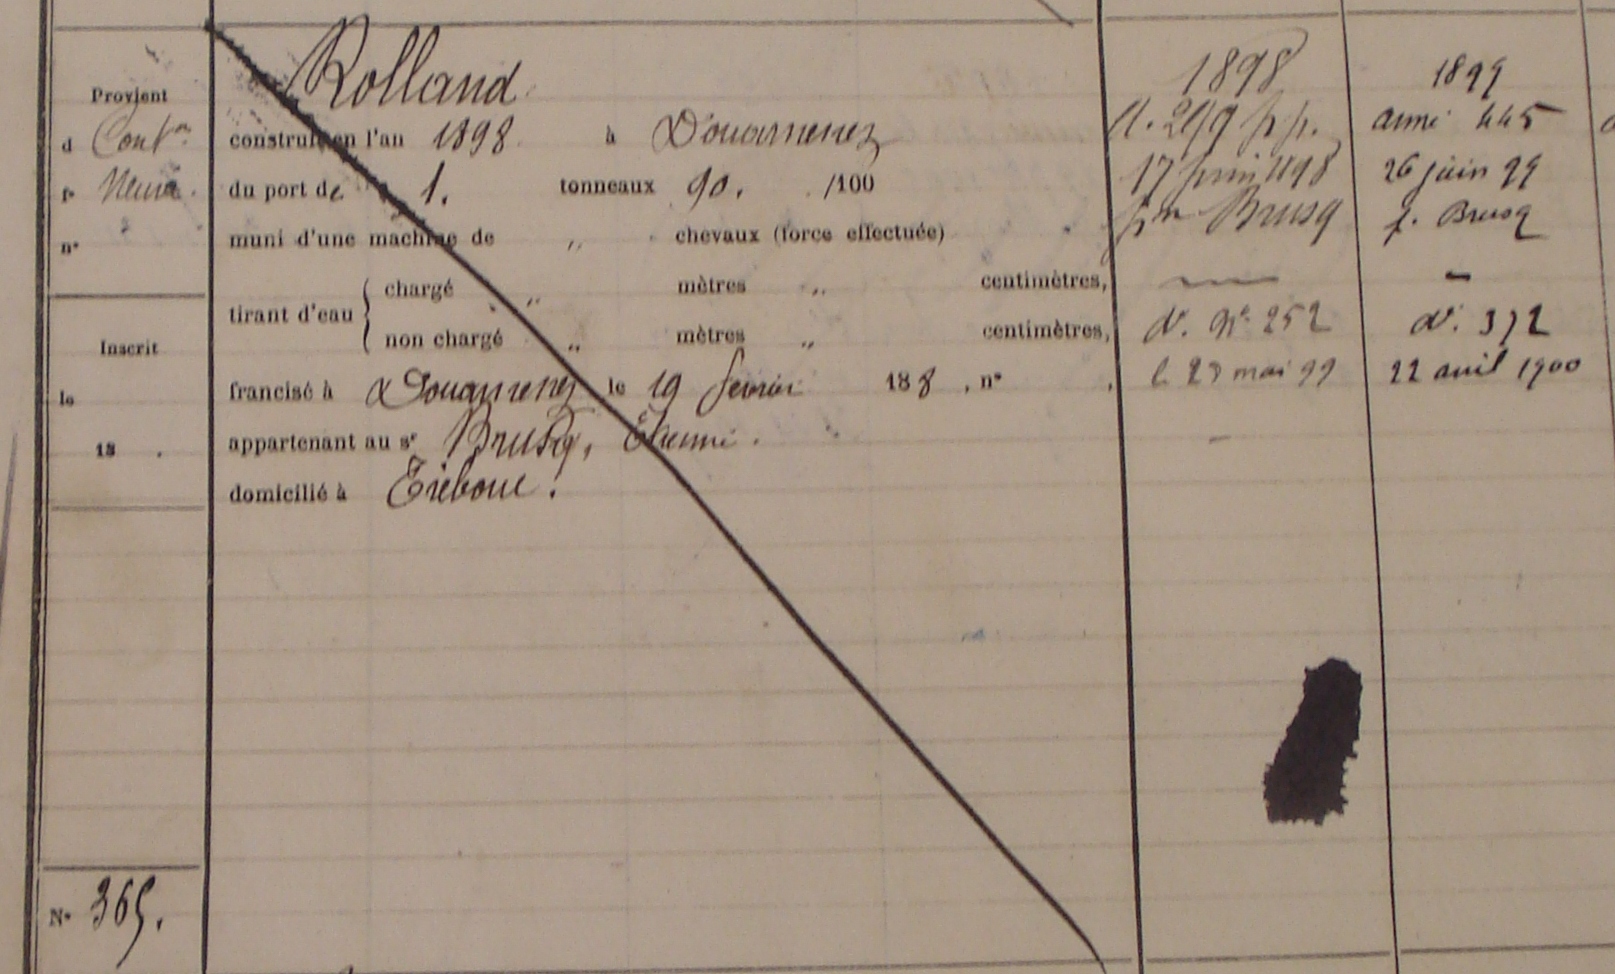 Provient
d Conton
r Neuve
n°
Inscrit
le
18 .
N° 365.
Rolland
construit en l'an 1898 à Douarnenez
du port de 1. tonneaux 90. /100
muni d'une machine de " chevaux (force effectuée)
tirant d'eau { chargé " mètres " centimètres,
non chargé " mètres " centimètres,
francisé à Douarnenez le 19 février 188 , n° ,
appartenant au sr Brusq, Etienne.
domicilié à Tréboul.
1898
A. 299 pp.
17 juin 1898
pon Brusq
D. N° 252
le 23 mai 99
1899
armé 445
26 juin 99
p. Brusq
D. 372
22 avril 1900